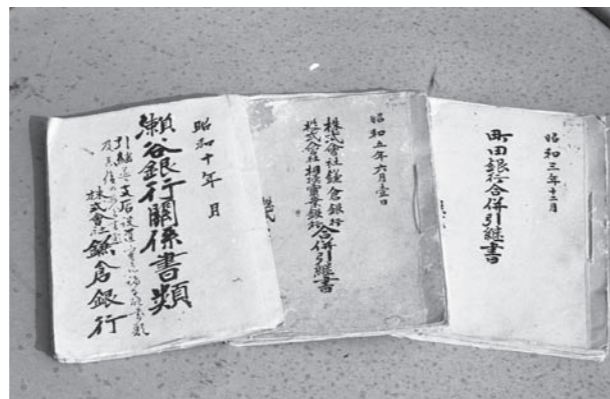 昭和三年十二月
町田銀行合併引継書
昭和五年六月壹日
株式會社鎌倉銀行
株式會社相模實業銀行
合併引継書
昭和十年 月
瀬谷銀行關係書類
引継 支店設置
株式會社鎌倉銀行